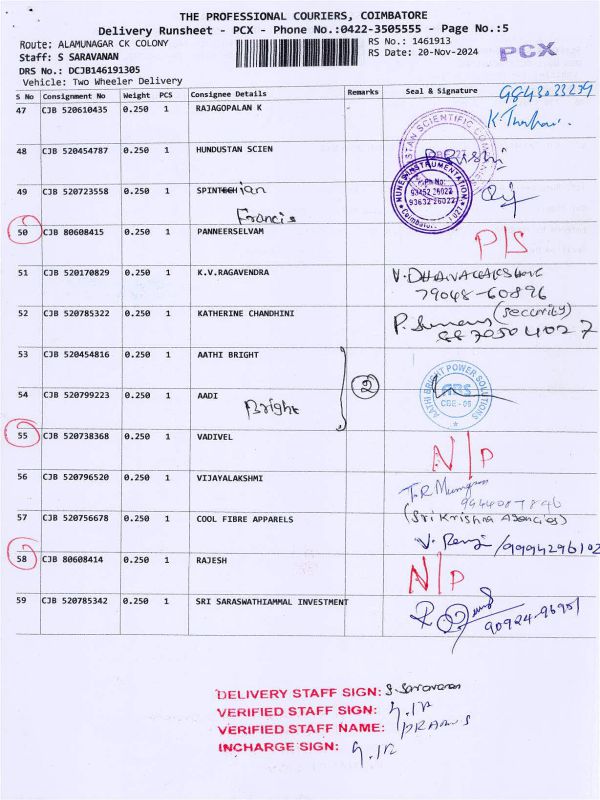 THE PROFESSIONAL COURIERS, COIMBATORE
Delivery Runsheet - PCX - Phone No.:0422-3505555 - Page No.:5
Route: ALAMUNAGAR CK COLONY
RS No.: 1461913
Staff: S SARAVANAN
RS Date: 20-Nov-2024
PCX
DRS No.: DCJB146191305
Vehicle: Two Wheeler Delivery
S No Consignment No Weight PCS Consignee Details Remarks Seal & Signature
9843033259
47 CJB 520610435 0.250 1 RAJAGOPALAN K -
48 CJB 520454787 0.250 1 HUNDUSTAN SCIEN
49 CJB 520723558 0.250 1 SPINTECH ian
Francis
NUNES INSTRUMENTATION
Ph No:
93452 26022
93632 26022
50 CJB 80608415 0.250 1 PANNEERSELVAM P/S
51 CJB 520170829 0.250 1 K.V.RAGAVENDRA
79048-60896
52 CJB 520785322 0.250 1 KATHERINE CHANDHINI
(security)
8870504027
53 CJB 520454816 0.250 1 AATHI BRIGHT
2
54 CJB 520799223 0.250 1 AADI
Bright
AATHI BRIGHT POWER SOLUTIONS
ABS
CBE-06
55 CJB 520738368 0.250 1 VADIVEL N/P
56 CJB 520796520 0.250 1 VIJAYALAKSHMI
T.R Murugan
57 CJB 520756678 0.250 1 COOL FIBRE APPARELS
(Sri Krishna Agencies)
/9994296102
58 CJB 80608414 0.250 1 RAJESH N/P
59 CJB 520785342 0.250 1 SRI SARASWATHIAMMAL INVESTMENT
DELIVERY STAFF SIGN: S. Saravanan
VERIFIED STAFF SIGN:
VERIFIED STAFF NAME:
INCHARGE SIGN: